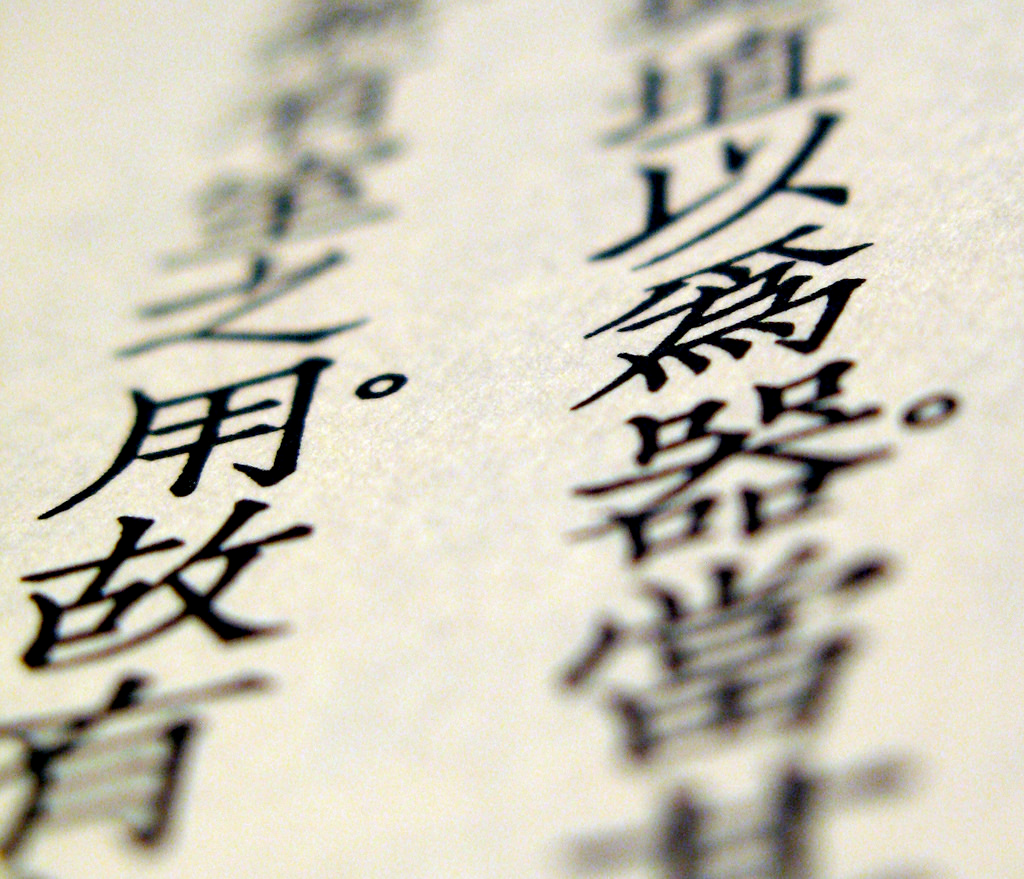 埴以為器。當其
室之用。故有